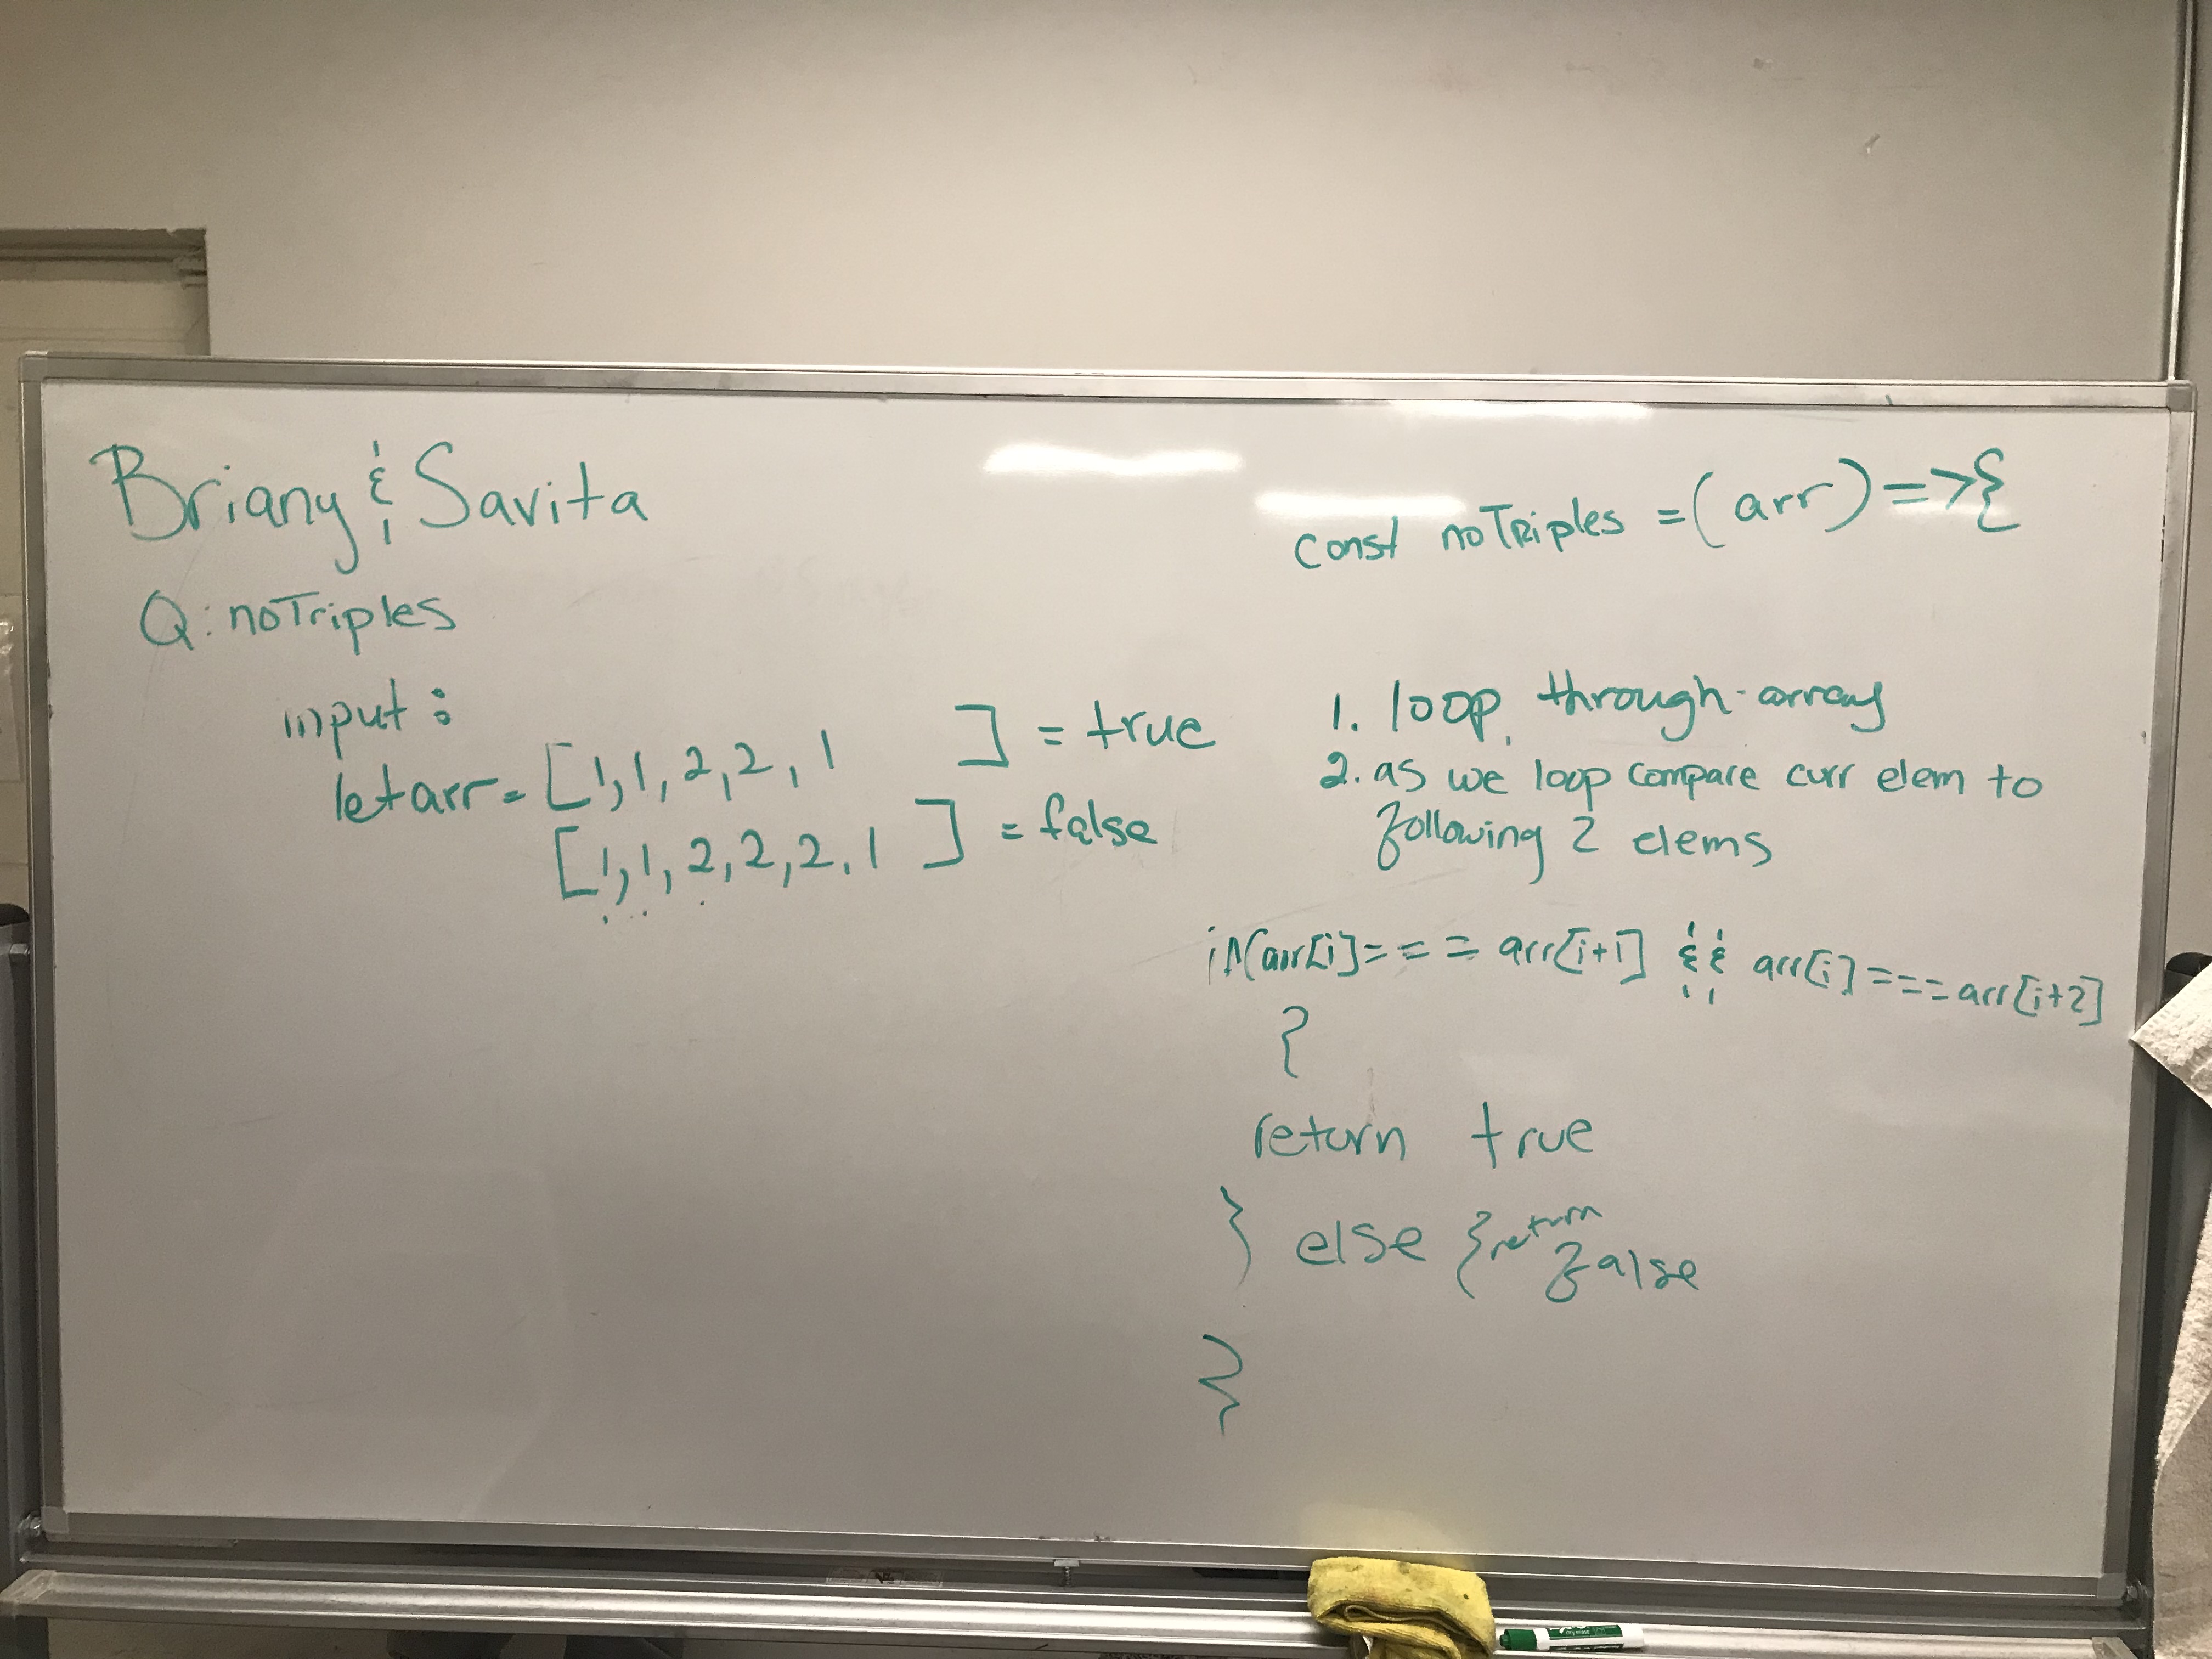 Briany & Savita
Q: noTriples
input:
let arr = [1,1,2,2,1 ] = true
[1,1,2,2,2,1 ] = false
const noTRiples = (arr) => {
1. loop through array
2. as we loop compare curr elem to
following 2 elems
if(arr[i] === arr[i+1] && arr[i] === arr[i+2]
{
return true
} else {return
false
}